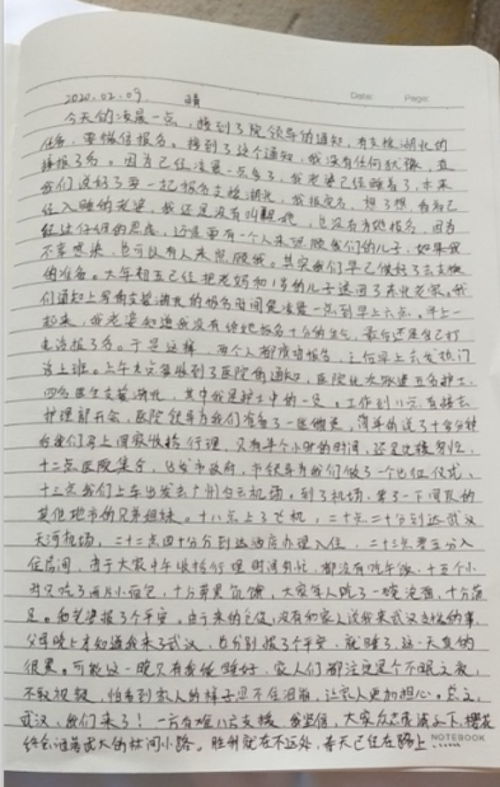 2020.02.09 晴
Date: Page:
今天的凌晨一点,接到了院领导的通知,有支援湖北的
任务,要微信报名。接到了这个通知,我没有任何犹豫,直
接报了名。因为已经凌晨一点多了,我老婆已经睡着了,本来
我们说好了要一起报名支援湖北,我报完名,想了想,看着已
经入睡的老婆,我还是没有叫醒她,也没有为她报名,因为
经过仔细的思虑,还是要有一个人来照顾我们的儿子,如果我
不幸感染,也可以有人来照顾我。其实我们早已做好了去支援
的准备。大年初五已经把老妈和1岁的儿子送回了东北老家。我
们通知上写着支援湖北的报名时间是凌晨一点到早上六点。早上一
起来,我老婆知道我没有给她报名十分的生气,最后还是自己打
电话报了名。于是这样,两个人都成功报名,之后早上去发热门
诊上班。上午九点多收到了医院的通知,医院此次派遣五名护士,
四名医生支援湖北,其中我是护士中的一员。工作到十一点,直接去
护理部开会,医院领导为我们准备了一些物资,简单的说了十多分钟
我们马上回家收拾行理,只有半个小时的时间,还是比较匆忙,
十二点医院集合,出发市政府,市领导为我们做了一个出征仪式。
十三点我们上车出发去广州白云机场。到了机场,等了一下同队的
其他地市的兄弟姐妹。十八点上了飞机,二十点二十分到达武汉
天河机场,二十二点四十分到达酒店办理入住,二十三点零五分入
住房间,由于大家中午收拾行理时间匆忙,都没有吃午饭,十五个小
时只吃了两片小面包,十分苹果,大家每人吃了一碗泡面,十分满
足。和老婆报了个平安,由于来的仓促,没有和家人说我来武汉支援的事,
父母晚上才知道我来了武汉,也分别报了个平安,就睡了,这一天真的
很累。可能这一晚只有我能睡好,家人们都注定是个不眠之夜,
不敢视频,怕看到家人的样子忍不住泪崩,让家人更加担心。总之,
武汉,我们来了!一方有难八方支援,我坚信,大家众志成城之下,樱花
终会铺满武大的林间小路。胜利就在不远处,春天已经在路上......
NOTEBOOK